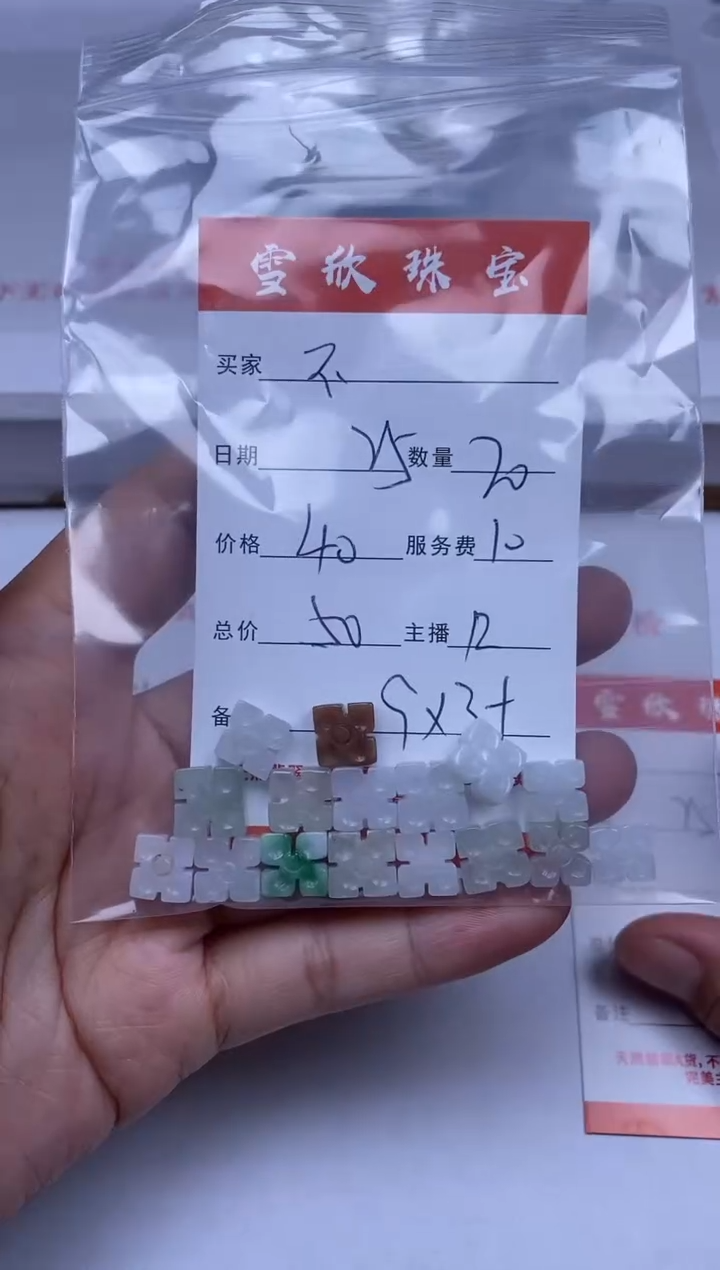 雪欣珠宝
买家 不
日期 25 数量 20
价格 40 服务费 10
总价 50 主播
备 9x3+
雪欣珠
备注
天然翡翠A货,不
完美主